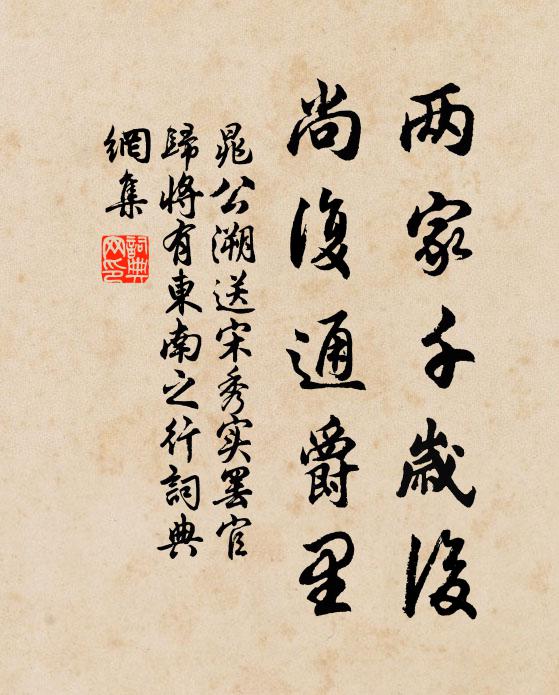 两家千歲後
尚復通爵里
晁公溯送宋秀实罢官
歸將有東南之行詞典
網集
詞典网印